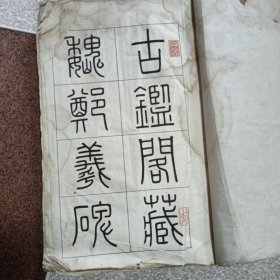 古鑑閣藏
魏鄭羲碑